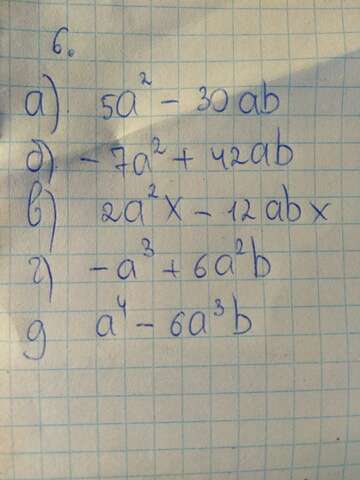 6.
а) 5a² - 30ab
б) - 7a² + 42ab
в) 2a²x - 12abx
г) - a³ + 6a²b
д a⁴ - 6a³b